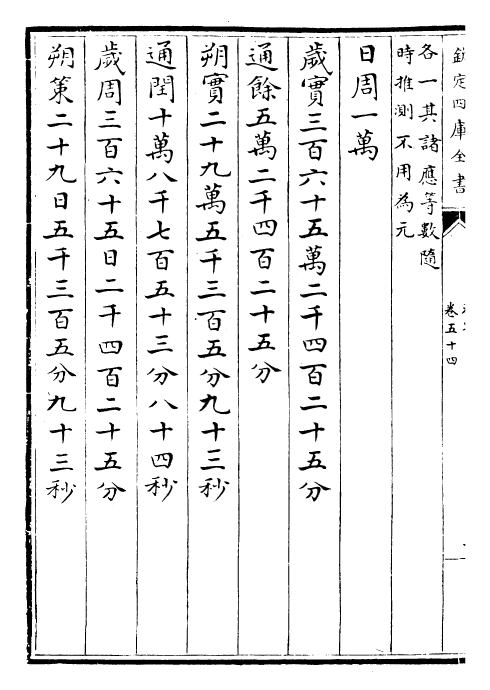 欽定四庫全書
卷五十四
各一其諸應等數隨
時推測不用為元
日周一萬
歲實三百六十五萬二千四百二十五分
通餘五萬二千四百二十五分
朔實二十九萬五千三百五分九十三秒
通閏十萬八千七百五十三分八十四秒
歲周三百六十五日二千四百二十五分
朔策二十九日五千三百五分九十三秒